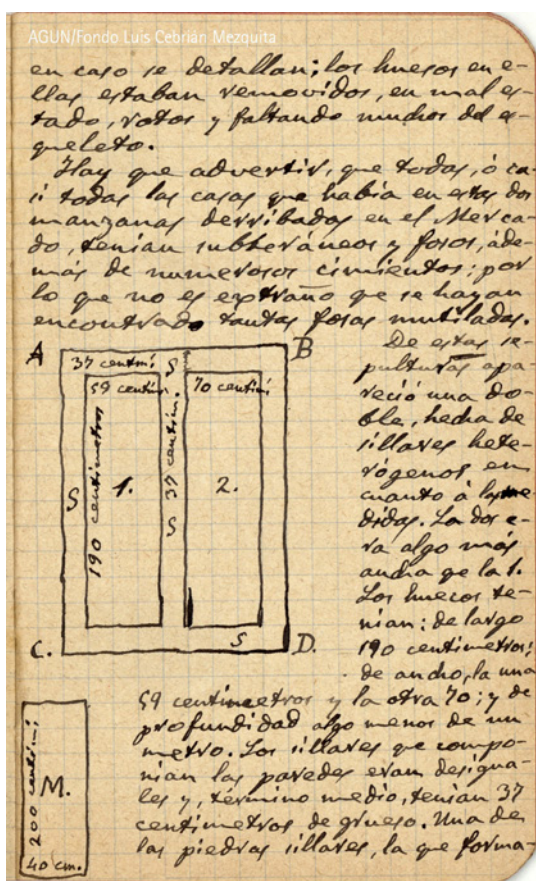 AGUN/Fondo Luis Cebrián Mezquita
en caso se detallan; los huesos en e-
llas estaban removidos, en mal es-
tado, rotos y faltando muchos del es-
queleto.
Hay que advertir, que todas, ó ca-
si todas las casas que había en estas dos
manzanas derribadas en el Merca-
do, tenían subteráneos y fosos, ade-
más de numerosos cimientos; por
lo que no es extraño que se hayan
encontrado tantas fosas mutiladas.
A
B
37 centmi
S
59 centim.
70 centimi
190 centimetros
1.
37 centim.
2.
S
S
S
C.
D.
De estas se-
pulturas apa-
reció una do-
ble, hecha de
sillares hete-
rógenos en
cuanto á las me-
didas. La dos e-
ra algo más
ancha qe la 1.
Los huecos te-
nían: de largo
190 centimetros;
de ancho, la una
59 centimetros y la otra 70; y de
profundidad algo menos de un
metro. Los sillares qe compo-
nían las paredes eran desigua-
les y, término medio, tenían 37
centimetros de grueso. Una de
las piedras sillares, la que forma-
M.
200 centimi
40 cm.